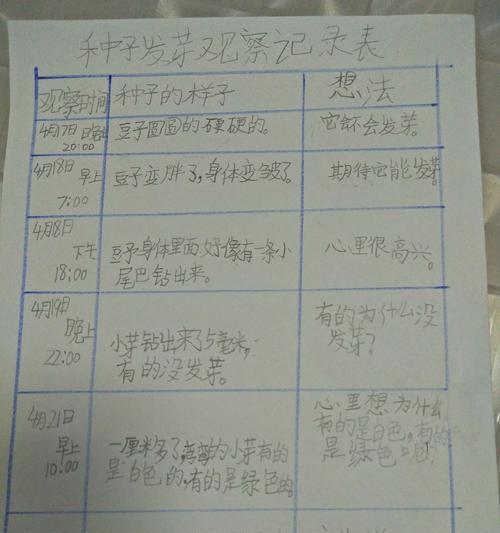 种子发芽观察记录表
观察时间 种子的样子 想法
4月17日 晚上 豆子圆圆的硬硬的。 它怀会发芽。
20:00
4月18日 早上 豆子变胖了,身体变皱了。 期待它能发芽。
7:00
4月18日
下午 豆子身体里面好像有一条小 心里很高兴。
18:00 尾巴钻出来。
4月19日 有的为什么没
晚上 小芽钻出来了5毫米, 发芽?
22:00 有的没发芽。
4月21日 心里想为什么
早上 一厘米多了,弯弯的小芽有的 有的是白色,有的
10:00 是白色的,有的是绿色的。 是绿色呢?